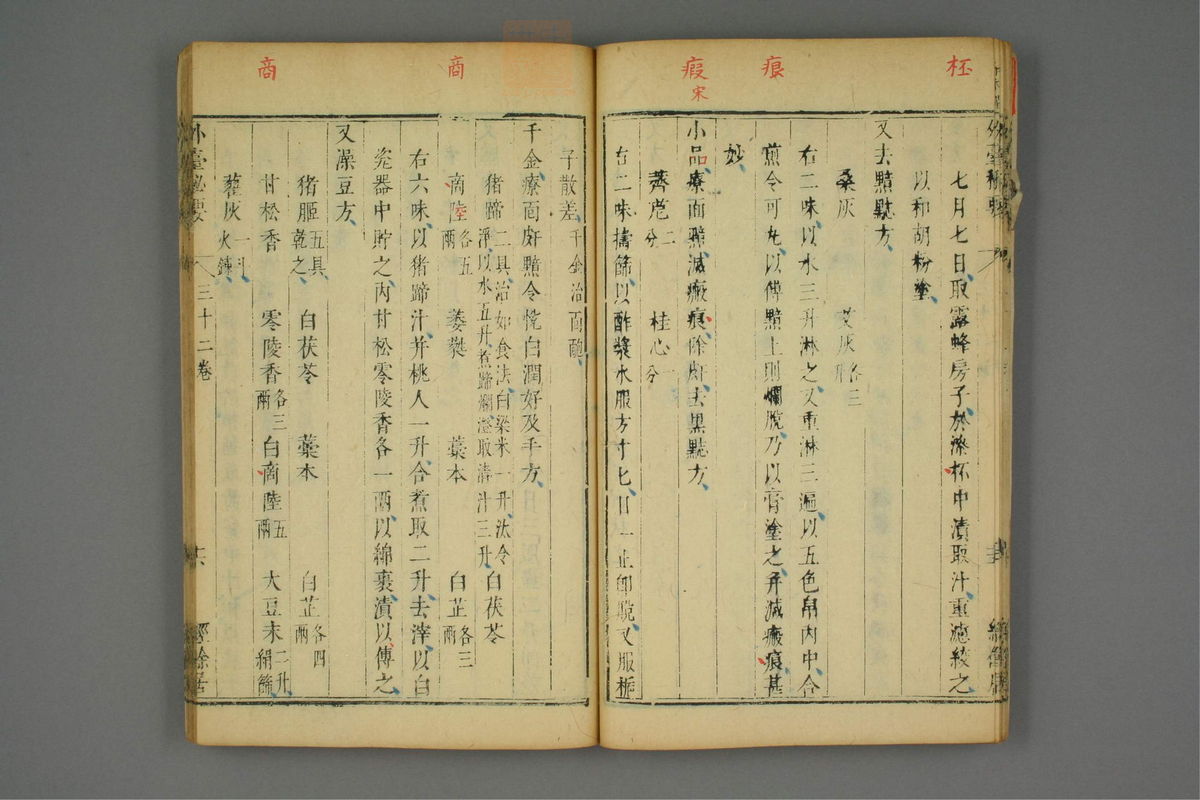 柸
痕
瘕
宋
七月七日取露蜂房子於漆杯中漬取汁重濾絞之
以和胡粉塗
又去黯點方
桑灰 艾灰各三升
右二味以水三升淋之又重淋三遍以五色帛內中合
煎令可丸以傅黯上則爛脫乃以膏塗之并減瘢痕甚
妙
小品療面黯滅瘢痕除
去黑黯方
薺苨二分 桂心一分
右二味擣篩以酢漿水服方寸匕日一止即脫又服梔
商
商
子散差千金治面
千金療面皯黯令悅白潤好及手方
猪蹄二具治如食法白梁米一升汰令淨以水五升煮蹄爛澄取清汁三升 白茯苓
商陸各五兩 萎蕤 藁本 白芷各三兩
右六味以猪蹄汁并桃人一升合煮取二升去滓以白
瓷器中貯之內甘松零陵香各一兩以綿裹漬以傅之
又澡豆方
猪胰五具乾之 白茯苓 藁本 白芷各四兩
甘松香 零陵香各三兩 白商陸五兩 大豆末二升絹篩
藜灰一斗火鍊
外臺秘要 三十二卷 十六 經餘居